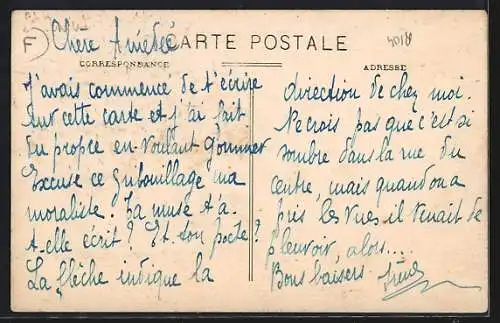 F
Chère Amédée
40188
CARTE POSTALE
CORRESPONDANCE
ADRESSE
J'avais commencé de t'écrire
sur cette carte et j'ai fait
du propre en voulant gommer
Excuse ce gribouillage ma
moraliste. La muse t'a-
t-elle écrit ? Et son poète ?
La flèche indique la
direction de chez moi.
Ne crois pas que c'est si
sombre dans la rue du
centre, mais quand on a
pris les vues, il venait de
pleuvoir, alors....
Bons baisers